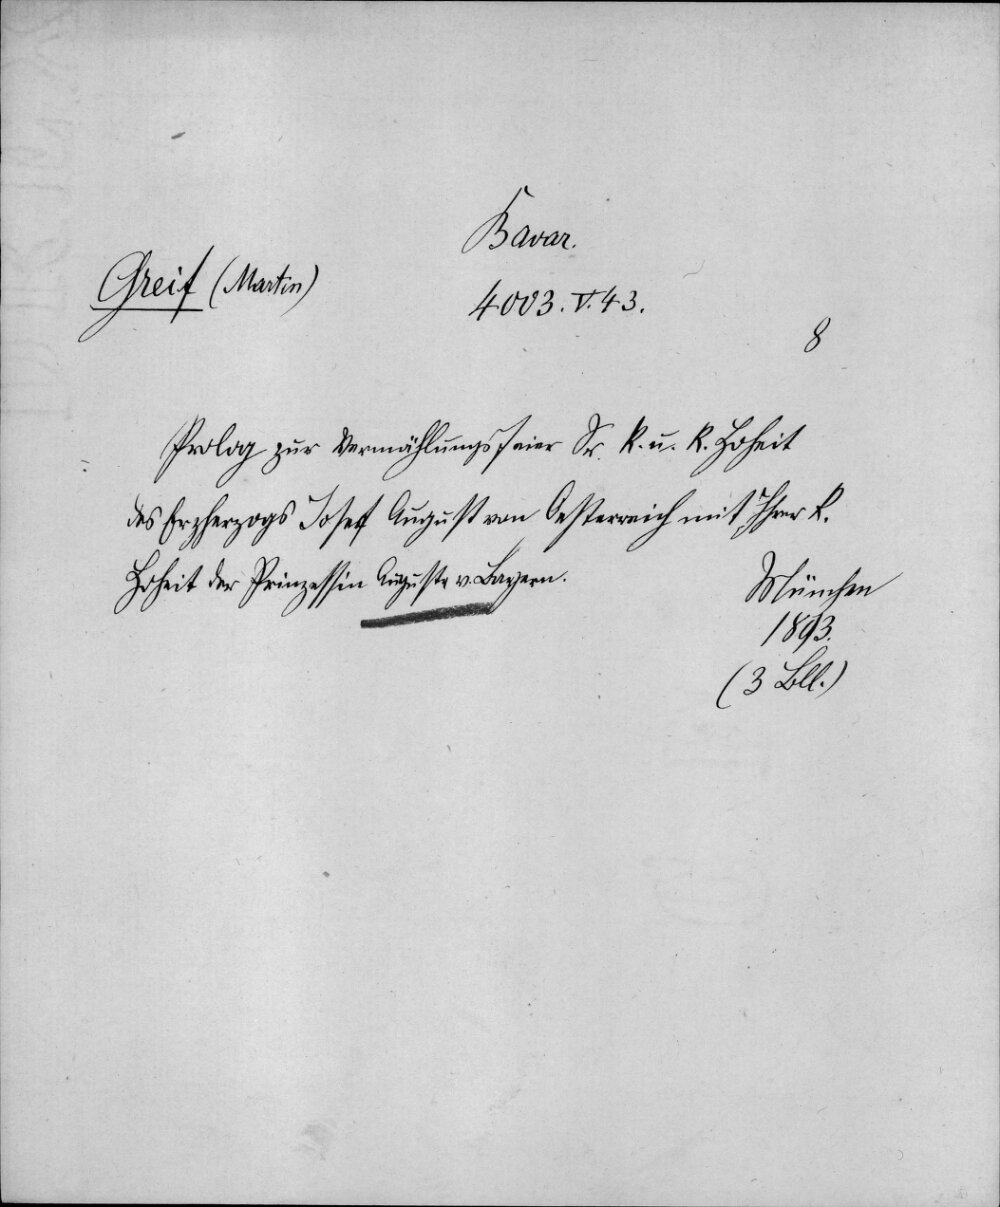 Bavar.
Greif (Martin)
4003. V. 43.
8
Prolog zur Vermählungsfeier Sr. K. u. K. Hoheit
des Erzherzogs Josef August von Oesterreich mit Ihrer k.
Hoheit der Prinzessin Auguste v. Bayern.
München
1893.
(3 Bll.)